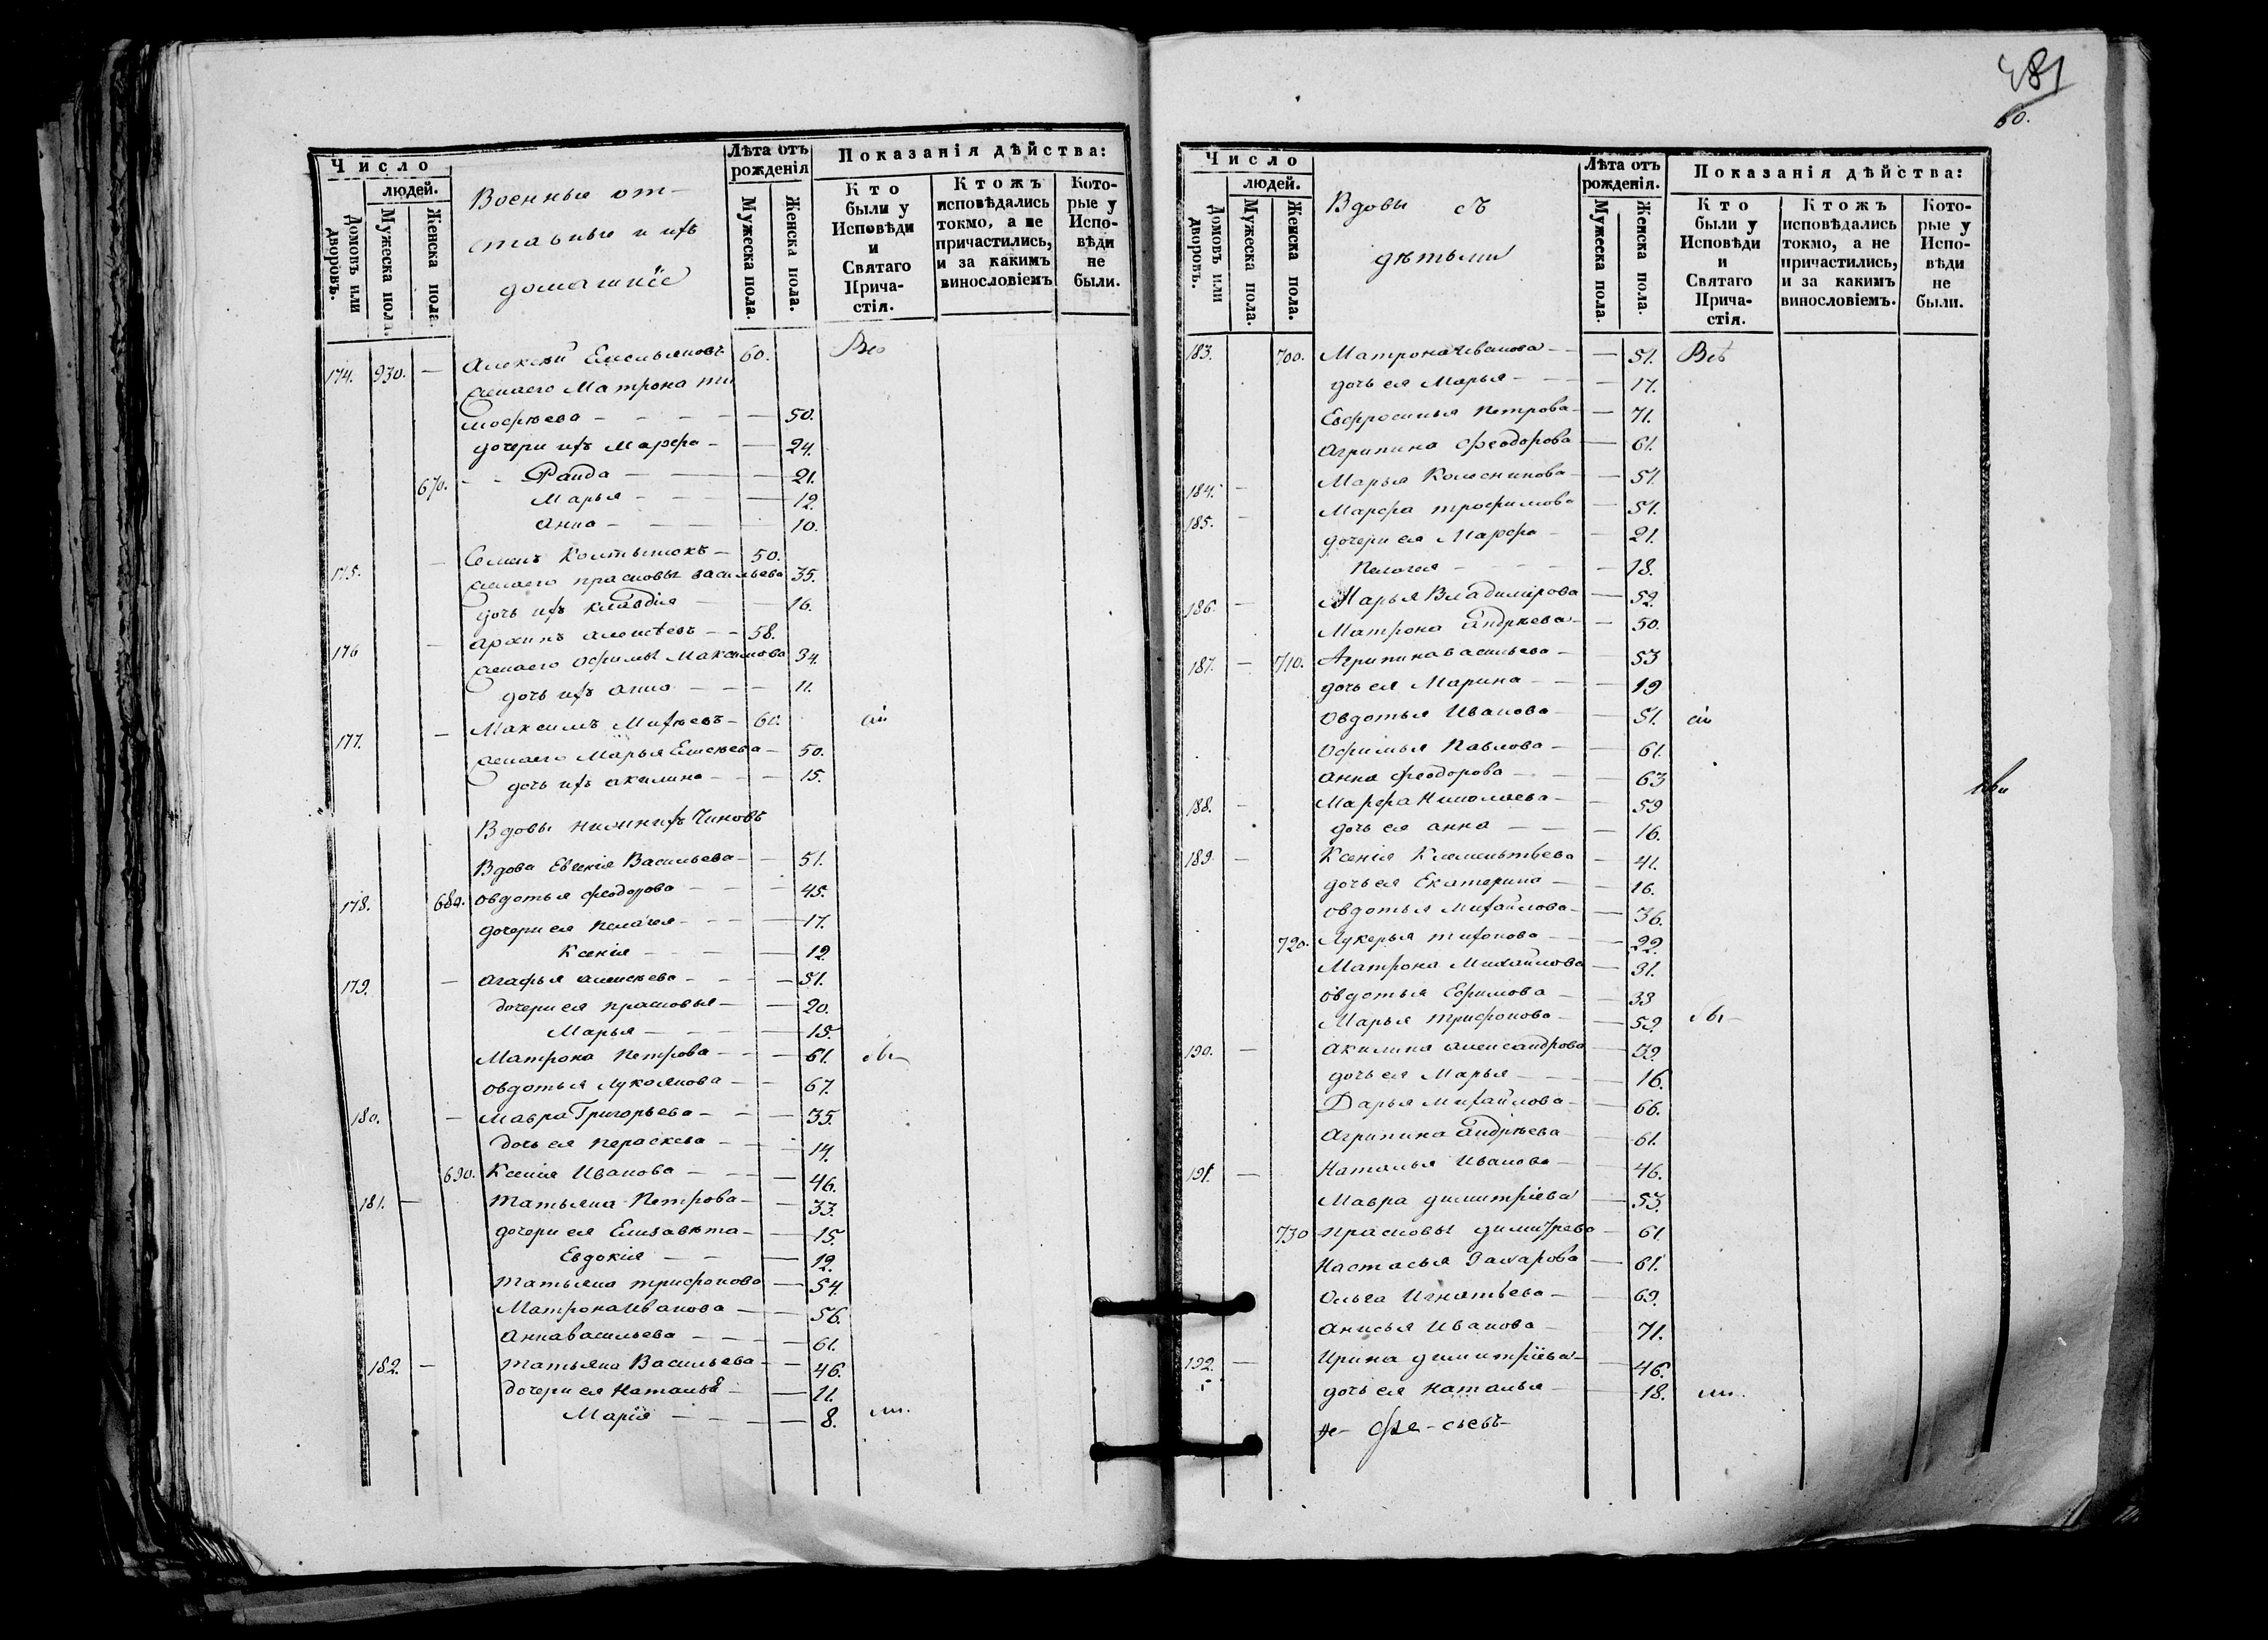 481
60.
Число
людей.
Домовъ или дворовъ.
Мужеска пола.
Женска пола.
Военные от-
ставные и ихъ
домашніе
Лѣта отъ рожденія
Мужеска пола.
Женска пола.
Показанія дѣйства:
Кто были у Исповѣди и Святаго Прича-стія.
Ктожъ исповѣдались токмо, а не причастились, и за какимъ винословіемъ
Кото-рые у Испо-вѣди не были.
174. 930. — Алексѣй Емельяновъ 60. Всѣ
жена его Матрона Ти
мофѣева — 50.
дочери ихъ Марфа — 24.
670. Раида — 21.
Марья — 12.
Анна — 10.
175. — Семенъ Колтышокъ — 50.
жена его Прасковья Васильева 35.
дочь ихъ Клавдія — 16.
176 — Архипъ Алексѣевъ — 58.
жена его Офимья Максимова 34.
дочь ихъ Анна — 11.
177. — Максимъ Михѣевъ — 60. сіи
жена его Марья Елисѣева — 50.
дочь ихъ Акилина — 15.
Вдовы нижнихъ Чиновъ
Вдова Евгенія Васильева — 51.
178. 680. Овдотья Феодорова — 45.
дочери ея Пелагея — 17.
Ксенія — 12
179. — Агафья Алексѣева — 51.
дочери ея Прасковья — 20.
Марья — 15.
Матрона Петрова — 61.
Овдотья Лукоянова — 67.
180. — Мавра Григорьева — 35.
дочь ея Параскева — 14.
690. Ксенія Иванова — 46.
181. — Татьяна Петрова — 33.
дочери ея Елизавета — 15.
Евдокія — 12.
Татьяна Трифонова — 54.
Матрона Иванова — 56.
Анна Васильева — 61.
182. — Татьяна Васильева — 46.
дочери ея Наталья — 11.
Марія — 8.
Число
людей.
Домовъ или дворовъ.
Мужеска пола.
Женска пола.
Вдовы съ
дѣтьми
Лѣта отъ рожденія.
Мужеска пола.
Женска пола.
Показанія дѣйства:
Кто были у Исповѣди и Святаго Прича-стія.
Ктожъ исповѣдались токмо, а не причастились, и за какимъ винословіемъ.
Кото-рые у Испо-вѣди не были.
183. 700. Матрона Иванова — 51. Всѣ
дочь ея Марья — 17.
Евфросинья Петрова — 71.
Агрипина Феодорова — 61.
184. — Марья Колесникова — 51.
185. — Марфа Трофимова — 51.
дочери ея Марфа — 21.
Пелагея — 18.
186. — Марья Владимірова — 52.
Матрона Андрѣева — 50.
187. — 710. Агрипина Васильева — 53
дочь ея Марина — 19
Овдотья Иванова — 51. сіи
Офимья Павлова — 61.
Анна Феодорова — 63
188. — Марфа Николаева — 59
дочь ея Анна — 16.
189. — Ксенія Клементьева — 41.
дочь ея Екатерина — 16.
Овдотья Михайлова — 36.
720. Лукерья Тихонова — 22.
Матрона Михайлова — 31.
Овдотья Ефимова — 33
Марья Трифонова — 52.
190. — Акилина Александрова — 39.
дочь ея Марья — 16.
Дарья Михайлова — 66.
Агрипина Андрѣева — 61.
191. — Наталья Иванова — 46.
Мавра Димитріева — 53.
730 Прасковья Димитрева — 61
Настасья Захарова — 61.
Ольга Игнатьева — 69.
Анисья Иванова — 71.
192. — Ирина Димитріева — 46.
дочь ея Наталья — 18.